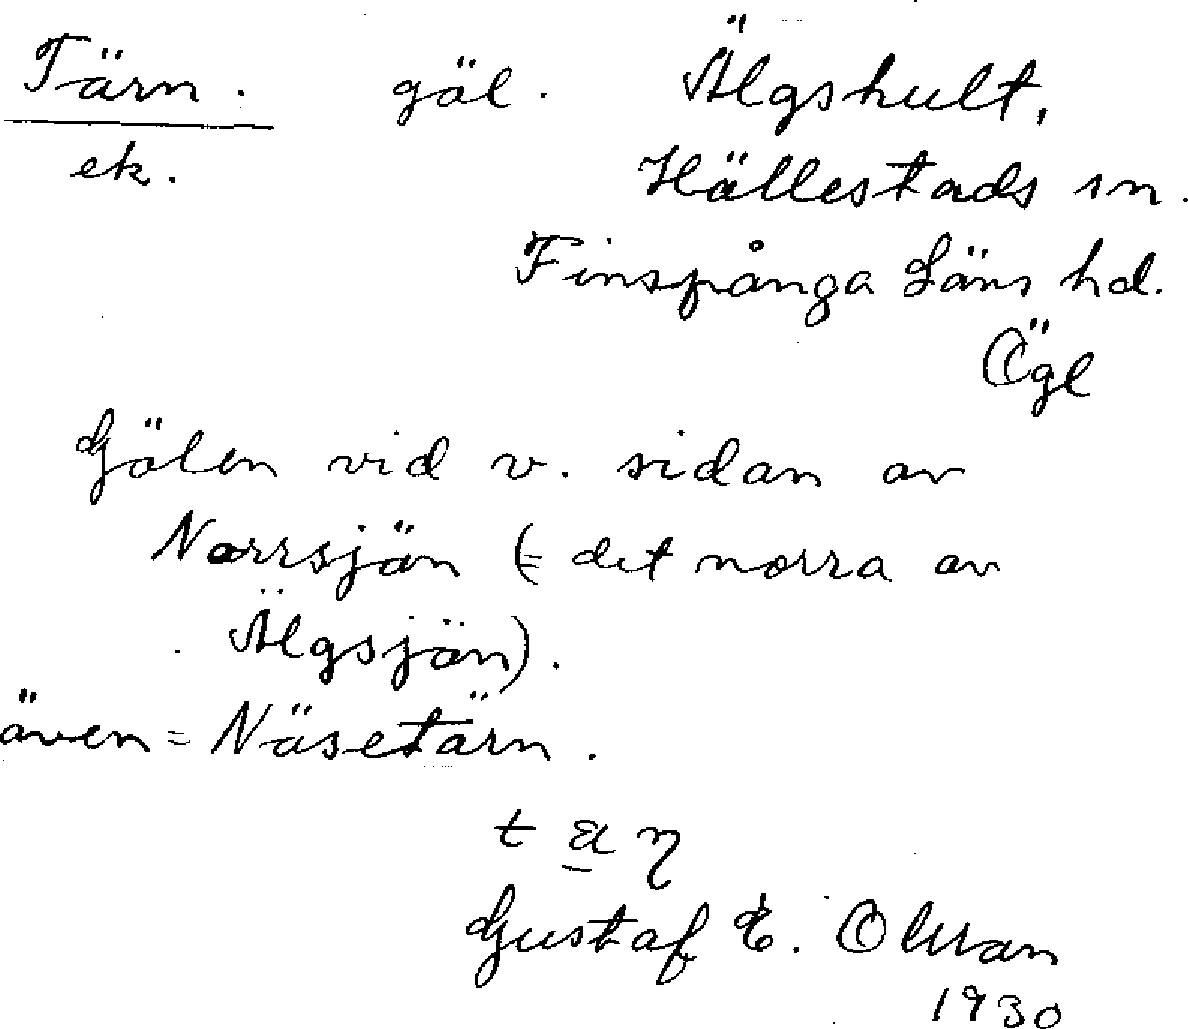 Tärn. göl. Älgshult,
ek. Hällestads sn.
Finspånga Läns hd.
Ögl
Gölen vid v. sidan av
Norrsjön (= det norra av
Älgsjön).
även = Näsetärn.
Gustaf E. Olsson
1930